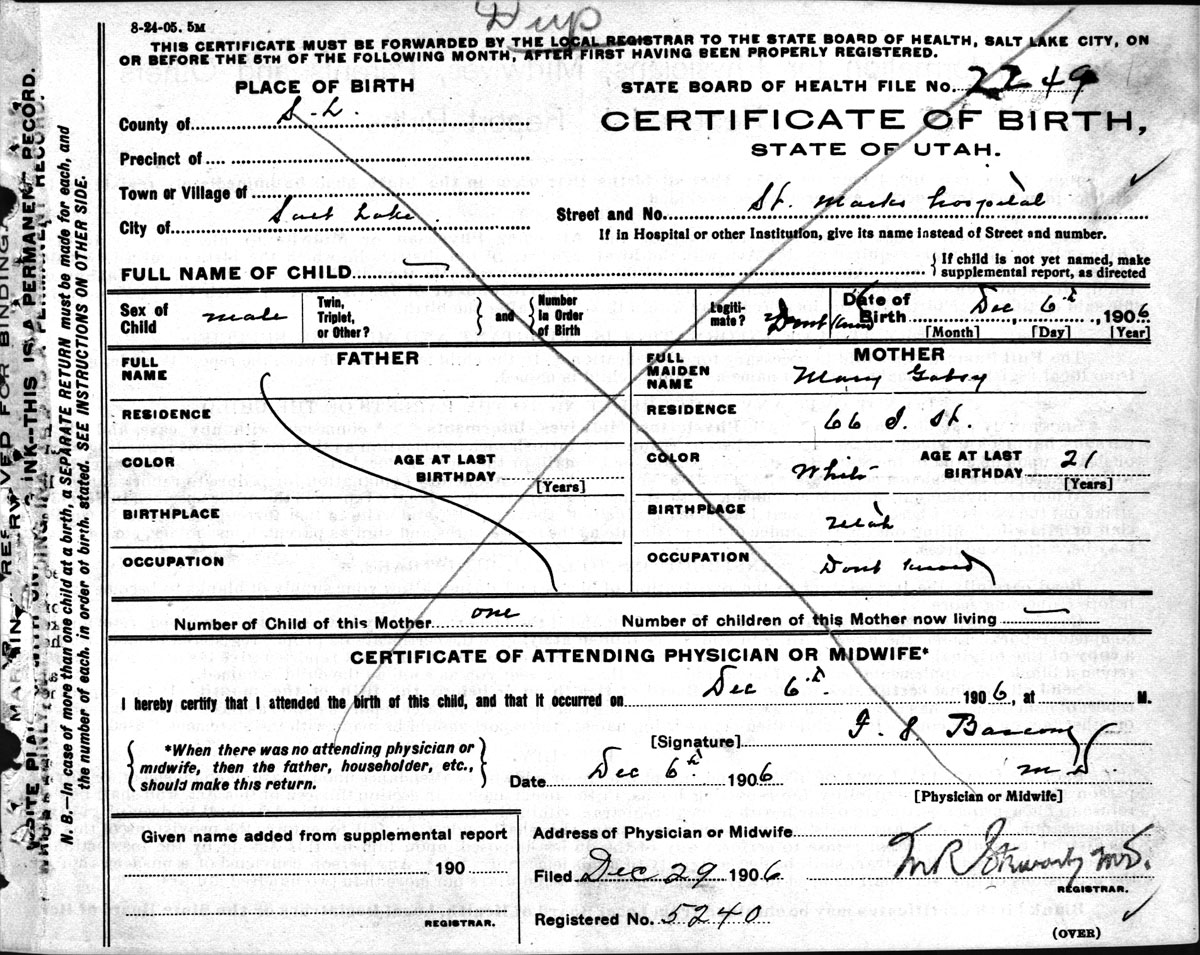 8-24-05. 5M
Dup
THIS CERTIFICATE MUST BE FORWARDED BY THE LOCAL REGISTRAR TO THE STATE BOARD OF HEALTH, SALT LAKE CITY, ON
OR BEFORE THE 5TH OF THE FOLLOWING MONTH, AFTER FIRST HAVING BEEN PROPERLY REGISTERED.
PLACE OF BIRTH
STATE BOARD OF HEALTH FILE No. 2249
County of S-L.
CERTIFICATE OF BIRTH,
STATE OF UTAH.
Precinct of
Town or Village of
City of Salt Lake
Street and No. St. Marks hospital
If in Hospital or other Institution, give its name instead of Street and number.
FULL NAME OF CHILD
If child is not yet named, make
supplemental report, as directed
Sex of Child male
Twin, Triplet, or Other?
and
Number In Order of Birth
Legiti-mate? Dont know
Date of Birth Dec 6th, 1906
[Month] [Day] [Year]
FATHER
FULL NAME
RESIDENCE
COLOR
AGE AT LAST BIRTHDAY
[Years]
BIRTHPLACE
OCCUPATION
MOTHER
FULL MAIDEN NAME Mary
RESIDENCE 66 I. St.
COLOR White
AGE AT LAST BIRTHDAY 21
[Years]
BIRTHPLACE Utah
OCCUPATION Dont know
Number of Child of this Mother one
Number of children of this Mother now living
CERTIFICATE OF ATTENDING PHYSICIAN OR MIDWIFE*
I hereby certify that I attended the birth of this child, and that it occurred on Dec 6th 1906, at M.
*When there was no attending physician or
midwife, then the father, householder, etc.,
should make this return.
[Signature] F. S. Bascom
M D.
Date Dec 6th 1906
[Physician or Midwife]
Given name added from supplemental report
190
REGISTRAR.
Address of Physician or Midwife
Filed Dec 29 1906
M.D.
REGISTRAR.
Registered No. 5240
(OVER)
N. B.—In case of more than one child at a birth, a SEPARATE RETURN must be made for each, and
the number of each, in order of birth, stated. SEE INSTRUCTIONS ON OTHER SIDE.
INK--THIS IS A PERMANENT RECORD.
RESERVED FOR BINDING